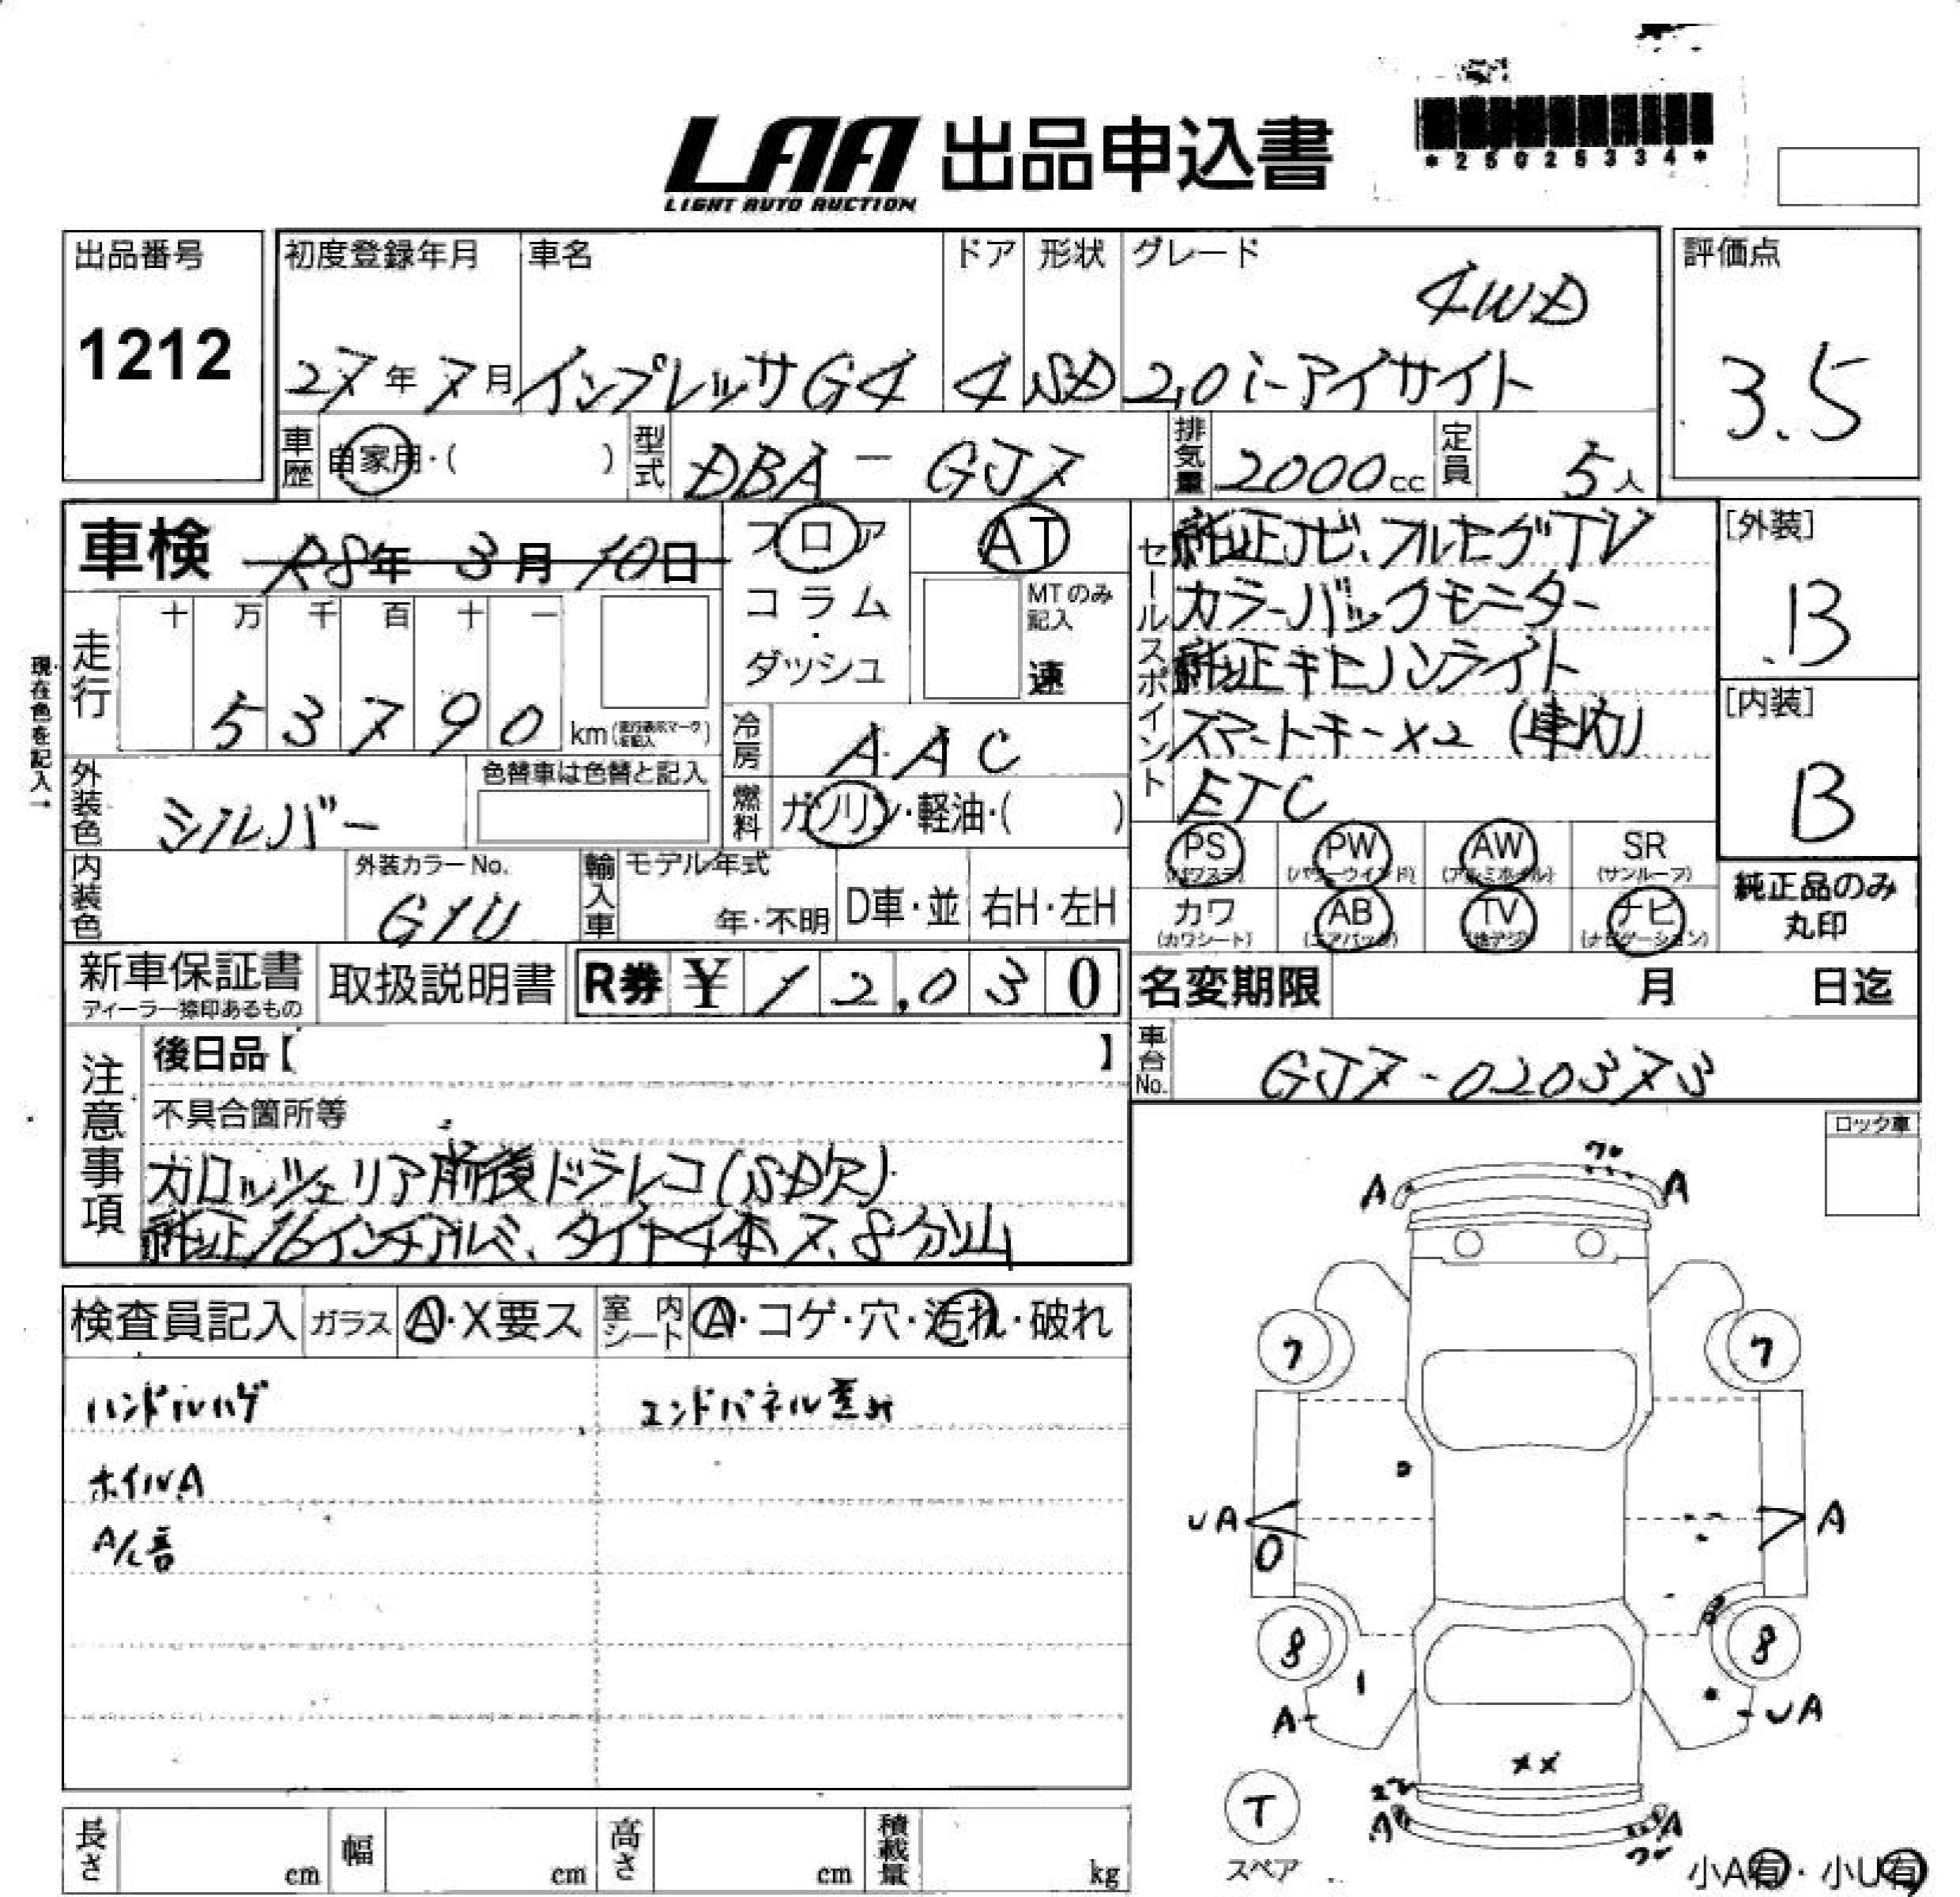 LAA 出品申込書
LIGHT AUTO AUCTION
*25025334*
出品番号
1212
初度登録年月
27年7月
車名
インプレッサG4
ドア
4
形状
SD
グレード
4WD
2.0i-アイサイト
評価点
3.5
車歴
自家用・( )
型式
DBA-GJ7
排気量
2000cc
定員
5人
車検 R8年3月10日
フロア
コラム
・
ダッシュ
AT
MTのみ
記入
速
セールスポイント
純正ナビ、フルセグTV
カラーバックモニター
純正キセノンライト
スマートキー×2 (車内)
ETC
[外装]
B
[内装]
B
現在色を記入→
走行
十 万 千 百 十 一
5 3 7 9 0 km
冷房
AAC
外装色
シルバー
色替車は色替と記入
燃料
ガソリン・軽油・( )
内装色
外装カラーNo.
G1U
輸入車
モデル年式
年・不明
D車・並
右H・左H
PS
(パワステ)
PW
(パワーウインド)
AW
(アルミホイル)
SR
(サンルーフ)
カワ
(カワシート)
AB
(エアバック)
TV
(地デジ)
ナビ
(ナビゲーション)
純正品のみ
丸印
新車保証書
ディーラー捺印あるもの
取扱説明書
R券 ¥ 12,030
名変期限 月 日迄
注意事項
後日品【 】
不具合箇所等
カロッツェリア前後ドラレコ(SD欠)
純正16インチアルミ、タイヤ4本7、8分山
車台No.
GJ7-020373
ロック車
検査員記入
ガラス
A・X要ス
室内
シート
A・コゲ・穴・汚れ・破れ
ハンドルハゲ
エンドパネル歪み
ホイルA
A/C音
A A
7 7
UA A
8 8
A UA
××
T
スペア
小A有・小U有
長さ cm
幅 cm
高さ cm
積載量 kg